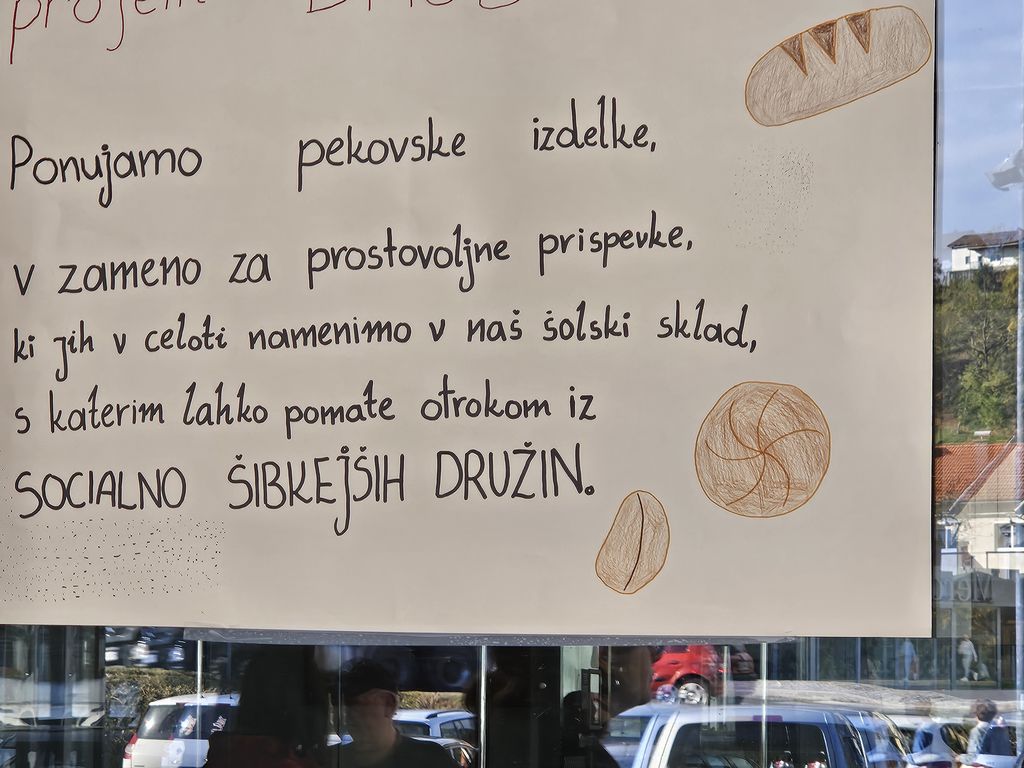 projem
Ponujamo pekovske izdelke,
v zameno za prostovoljne prispevke,
ki jih v celoti namenimo v naš šolski sklad,
s katerim lahko pomate otrokom iz
SOCIALNO ŠIBKEJŠIH DRUŽIN.